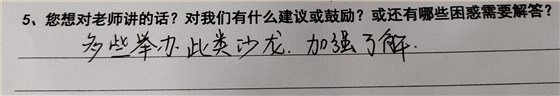 5、您想对老师讲的话？对我们有什么建议或鼓励？或还有哪些困惑需要解答？
多些举办此类沙龙.加强了解.